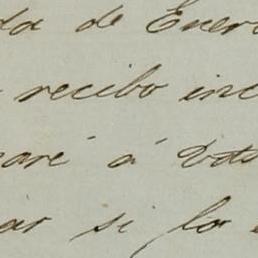 da de Enero
recibo inc
aré á
ar si lo